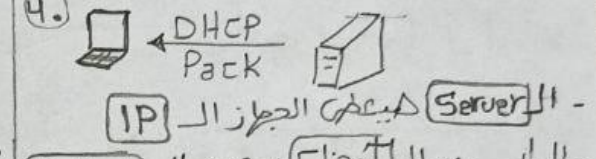 4.
DHCP
Pack
- الـ Server هيعطي الجهاز الـ IP